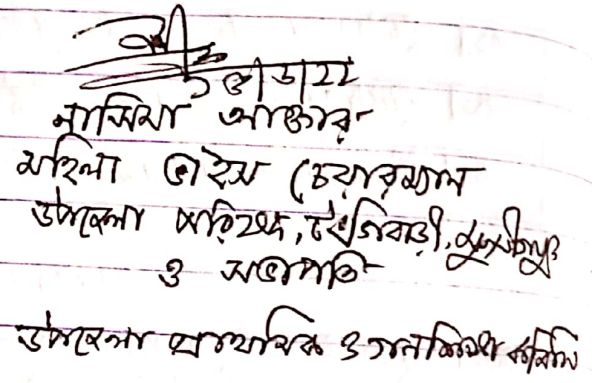 নাসিমা আক্তার
মহিলা ভাইস চেয়ারম্যান
উপজেলা পরিষদ, টংগিবাড়ী, মুন্সীগঞ্জ
ও সভাপতি
উপজেলা প্রাথমিক ও গনশিক্ষা কমিটি